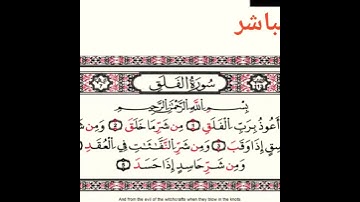 باشر
سُورَةُ الفَلَقِ
بِسْمِ اللَّهِ الرَّحْمَٰنِ الرَّحِيمِ
أَعُوذُ بِرَبِّ الْفَلَقِ ۝١ مِن شَرِّ مَا خَلَقَ ۝٢ وَمِن شَ
سِقٍ إِذَا وَقَبَ ۝٣ وَمِن شَرِّ النَّفَّٰثَٰتِ فِي الْعُقَدِ ۝٤
وَمِن شَرِّ حَاسِدٍ إِذَا حَسَدَ ۝٥
And from the evil of the witchcrafts when they blow in the knots